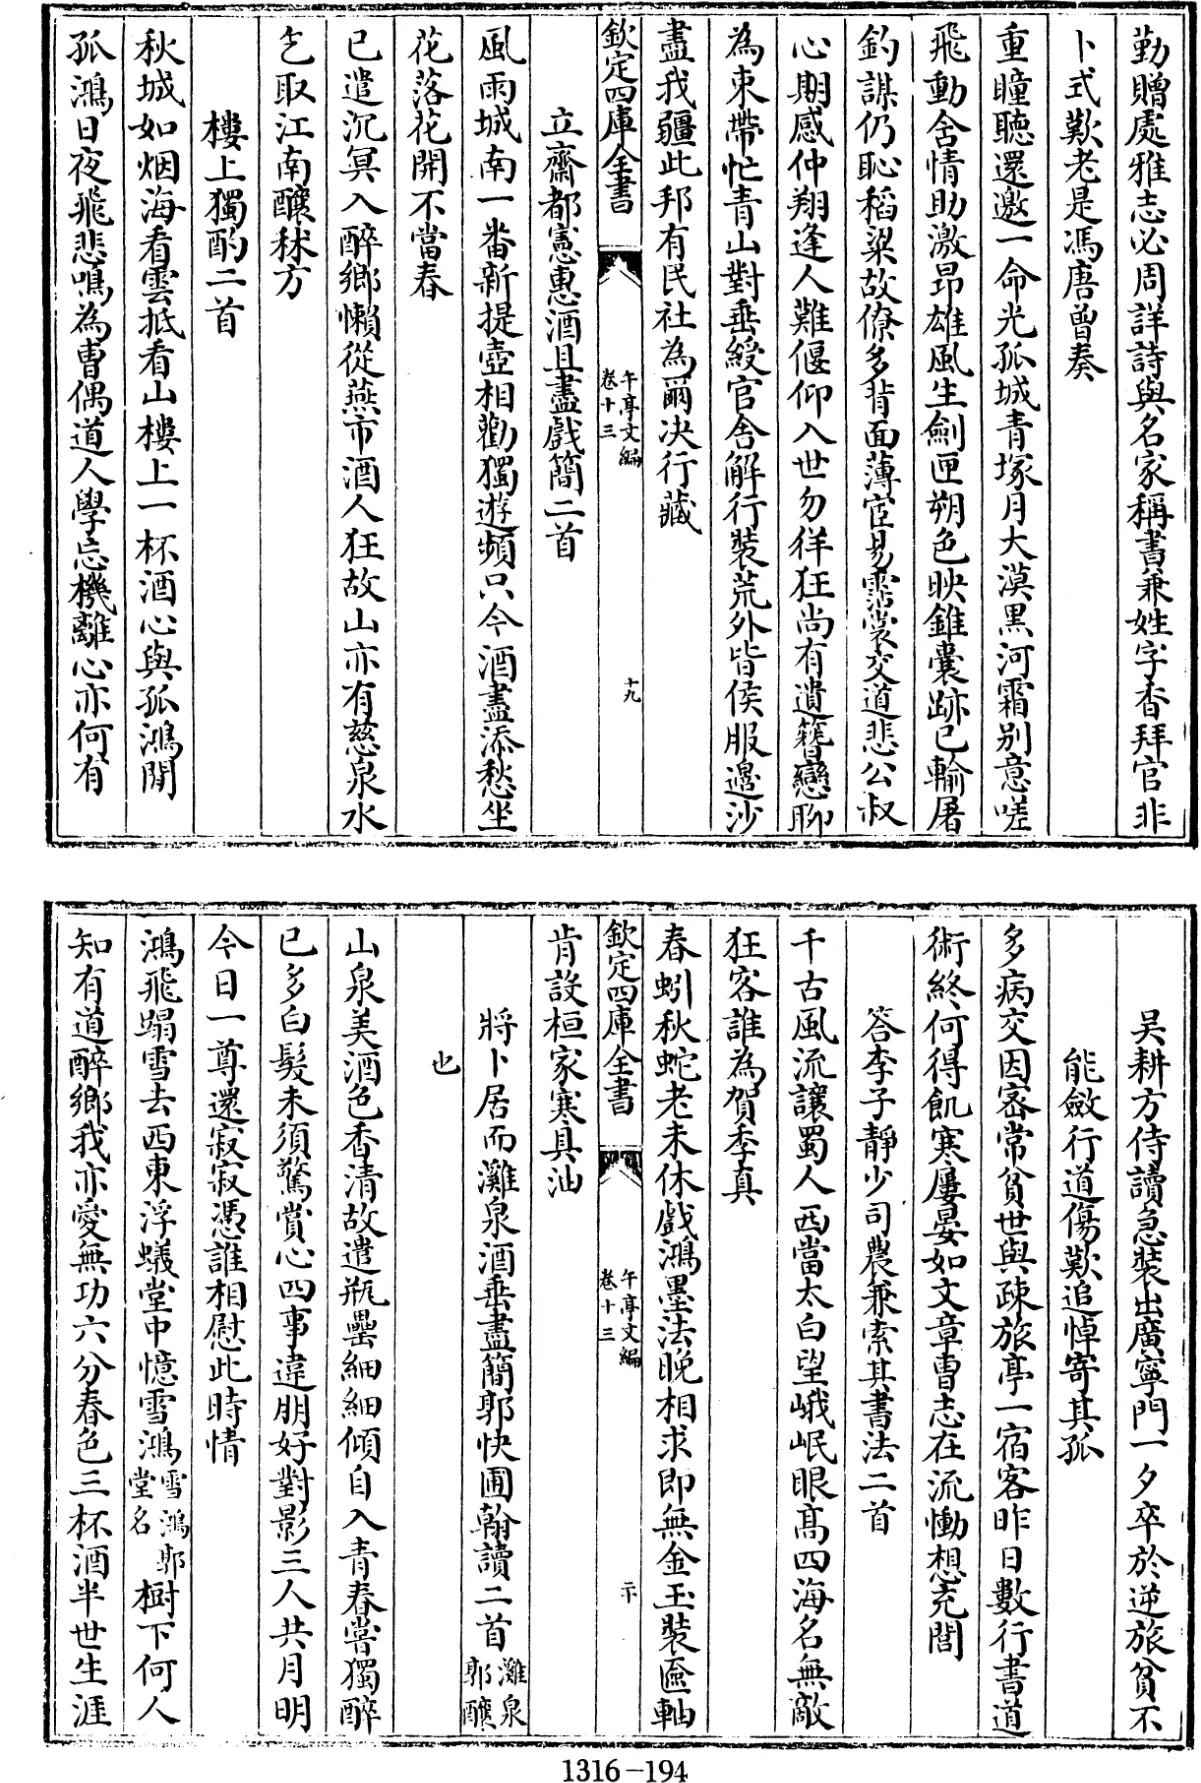 勤贈處雅志必周詳詩與名家稱書兼姓字香拜官非
卜式歎老是馮唐曾奏
重瞳聽還邀一命光孤城青塚月大漠黑河霜别意嗟
飛動舍情助激昂雄風生劍匣朔色映錐囊跡已輸屠
釣謀仍恥稻粱故僚多背面薄宦易霑裳交道悲公叔
心期感仲翔逢人難偃仰入世勿佯狂尚有遺簪戀聊
為束帶忙青山對垂綬官舍解行裝荒外皆侯服邊沙
盡我疆此邦有民社為爾决行藏
欽定四庫全書
午亭文編
卷十三
十九
立齋都憲惠酒且盡戲簡二首
風雨城南一番新提壺相勸獨遊頻只今酒盡添愁坐
花落花開不當春
已遣沉冥入醉鄉懶從燕市酒人狂故山亦有慈泉水
乞取江南釀秫方
樓上獨酌二首
秋城如烟海看雲抵看山樓上一杯酒心與孤鴻閒
孤鴻日夜飛悲鳴為曹偶道人學忘機離心亦何有
吴耕方侍讀急裝出廣寧門一夕卒於逆旅貧不
能斂行道傷歎追悼寄其孤
多病交因密常貧世與疎旅亭一宿客昨日數行書道
術終何得飢寒屢晏如文章曹志在流慟想充閭
答李子靜少司農兼索其書法二首
千古風流讓蜀人西當太白望峨岷眼髙四海名無敵
狂客誰為賀季真
春蚓秋蛇老未休戲鴻墨法晚相求即無金玉裝匳軸
肯設桓家寒具油
欽定四庫全書
午亭文編
卷十三
二十
將卜居而灘泉酒垂盡簡郭快圃翰讀二首灘泉
郭釀
也
山泉美酒色香清故遣瓶罍細細傾自入青春嘗獨醉
已多白髮未須驚賞心四事違朋好對影三人共月明
今日一尊還寂寂憑誰相慰此時情
鴻飛蹋雪去西東浮蟻堂中憶雪鴻雪鴻郭
堂名樹下何人
知有道醉鄉我亦愛無功六分春色三杯酒半世生涯
1316-194